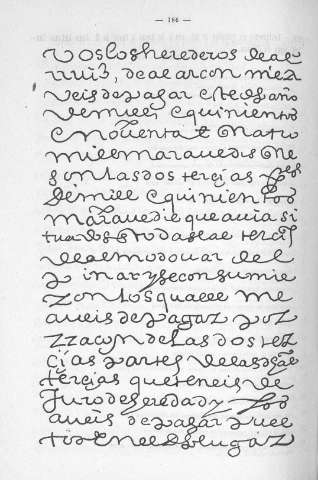 — 166 —
Vos los herederos de al
rruiz, de alarcon me a
veis de pagar este dho año
de mill e quinientos
e noventa e quatro
mill maravedis que
son las dos tercias
de mill e quinientos
maravedis que avia si
tuados sobre las tercias
de almodovar del
pinar y se consumie
ron los quales me
aveis de pagar por
rrazon de las dos ter
cias partes de las dhas
tercias que teneis de
juro de heredad y los
aveis de pagar pues
tos en el dho lugar